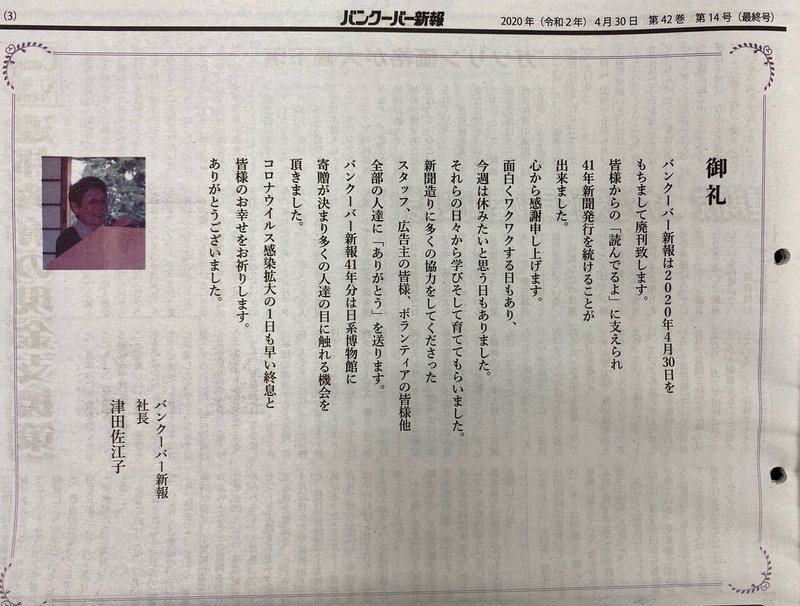 (3)
バンクーバー新報
2020年（令和2年）4月30日　第42巻　第14号（最終号）
御礼
バンクーバー新報は2020年4月30日を
もちまして廃刊致します。
皆様からの「読んでるよ」に支えられ
41年新聞発行を続けることが
出来ました。
心から感謝申し上げます。
面白くワクワクする日もあり、
今週は休みたいと思う日もありました。
それらの日々から学びそして育ててもらいました。
新聞造りに多くの協力をしてくださった
スタッフ、広告主の皆様、ボランティアの皆様他
全部の人達に「ありがとう」を送ります。
バンクーバー新報41年分は日系博物館に
寄贈が決まり多くの人達の目に触れる機会を
頂きました。
コロナウイルス感染拡大の1日も早い終息と
皆様のお幸せをお祈りします。
ありがとうございました。
バンクーバー新報
社長
津田佐江子